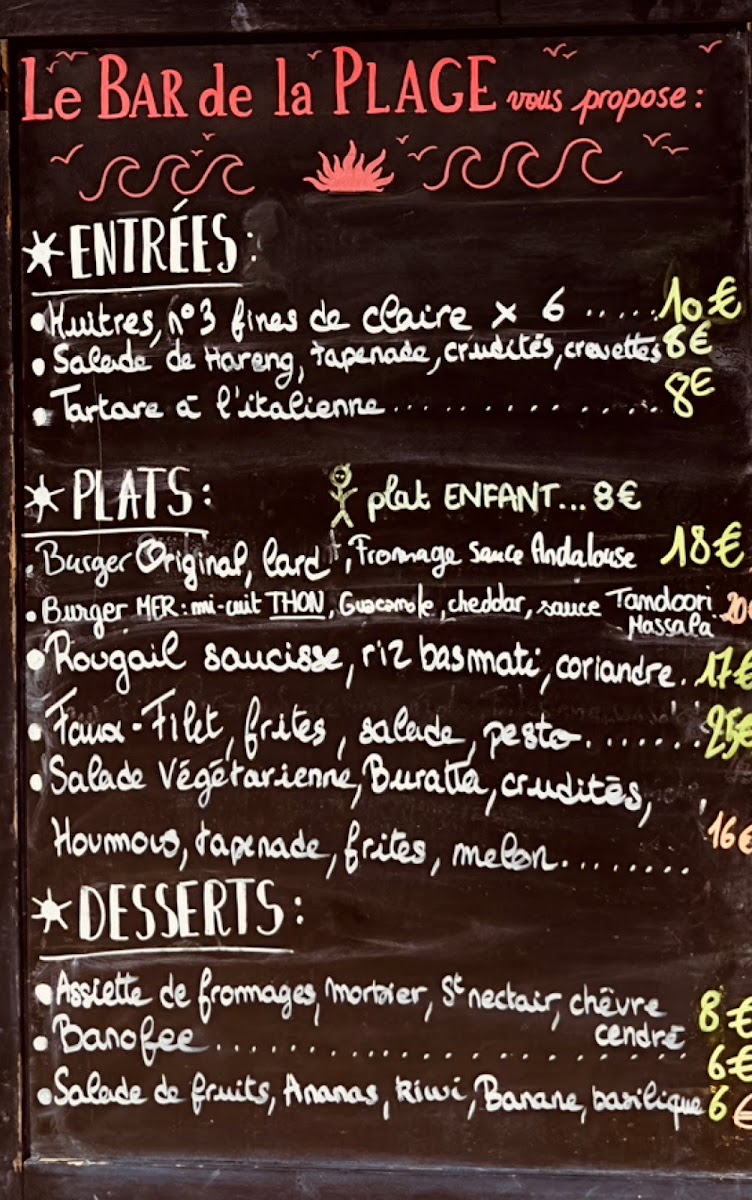 Le BAR de la PLAGE vous propose :
ENTRÉES :
• Huitres, n°3 fines de claire x 6 ..... 10€
• Salade de Hareng, tapenade, crudités, crevettes 8€
• Tartare à l'italienne .............. 8€
PLATS : plat ENFANT... 8€
• Burger Original, lard, Fromage sauce Andalouse 18€
• Burger MER : mi-cuit THON, Guacamole, cheddar, sauce Tamdoori 20€
Massala
• Rougail saucisse, riz basmati, coriandre. 17€
• Faux-Filet, frites, salade, pesto....... 25€
• Salade Végétarienne, Buratta, crudités,
Houmous, tapenade, frites, melon........ 16€
DESSERTS :
• Assiette de fromages, morbier, St nectair, chêvre 8€
cendré
• Banofee........................ 6€
• Salade de fruits, Ananas, kiwi, Banane, basilique 6€